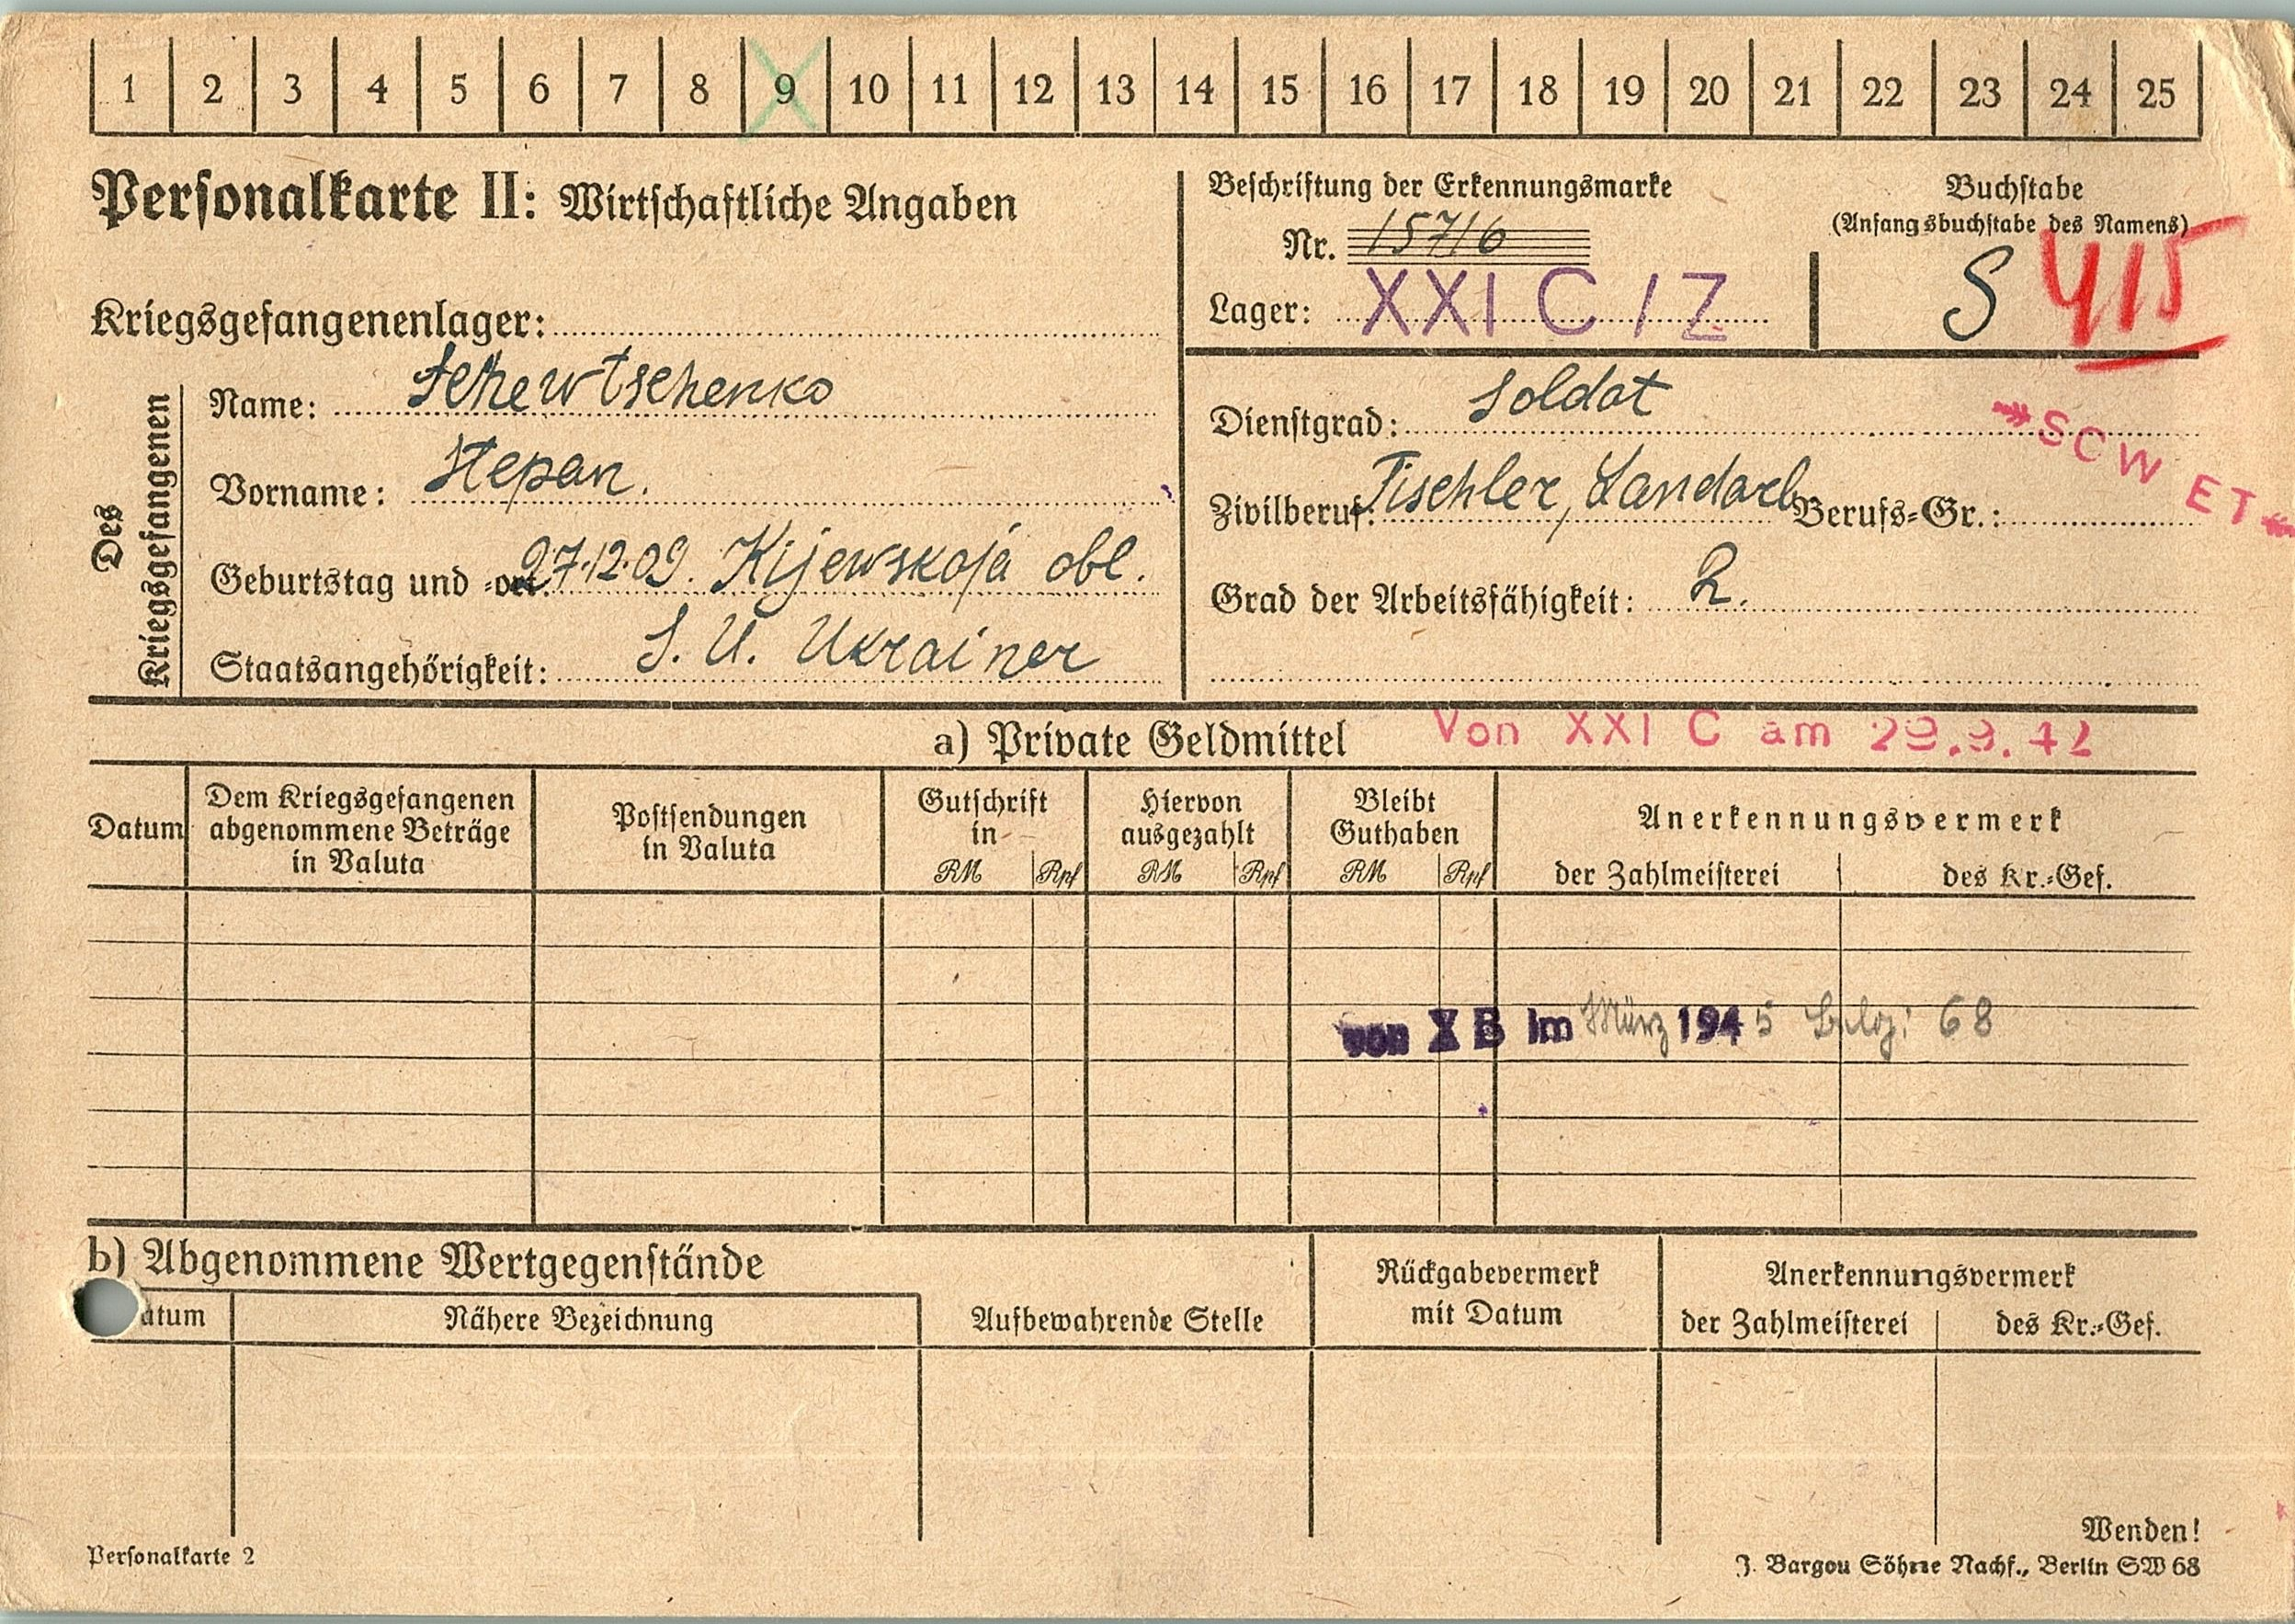 1 2 3 4 5 6 7 8 9 10 11 12 13 14 15 16 17 18 19 20 21 22 23 24 25
Personalkarte II: Wirtschaftliche Angaben
Beschriftung der Erkennungsmarke
Nr. 15716
Lager: XXI C / Z
Buchstabe
(Anfangsbuchstabe des Namens)
S 415
Kriegsgefangenenlager:
Des Kriegsgefangenen
Name: Schewtschenko
Vorname: Stepan.
Geburtstag und =ort: 27.12.09. Kijewskoja obl.
Staatsangehörigkeit: S. U. Ukrainer
Dienstgrad: Soldat
SOWJET
Zivilberuf: Tischler, Landarb Berufs=Gr.:
Grad der Arbeitsfähigkeit: 2.
a) Private Geldmittel Von XXI C am 29.9.42
Datum
Dem Kriegsgefangenen
abgenommene Beträge
in Valuta
Postsendungen
in Valuta
Gutschrift
in
RM Rpf
Hiervon
ausgezahlt
RM Rpf
Bleibt
Guthaben
RM Rpf
Anerkennungsvermerk
der Zahlmeisterei des Kr.=Gef.
von X B im März 1945 68
b) Abgenommene Wertgegenstände
atum Nähere Bezeichnung
Aufbewahrende Stelle
Rückgabevermerk
mit Datum
Anerkennungsvermerk
der Zahlmeisterei des Kr.=Gef.
Wenden!
Personalkarte 2
J. Bargou Söhne Nachf., Berlin SW 68